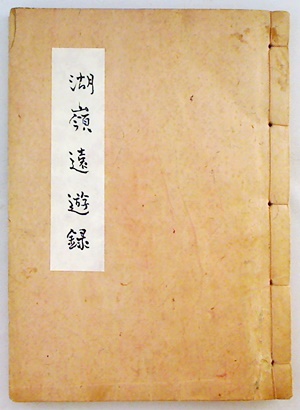 湖嶺遠遊録